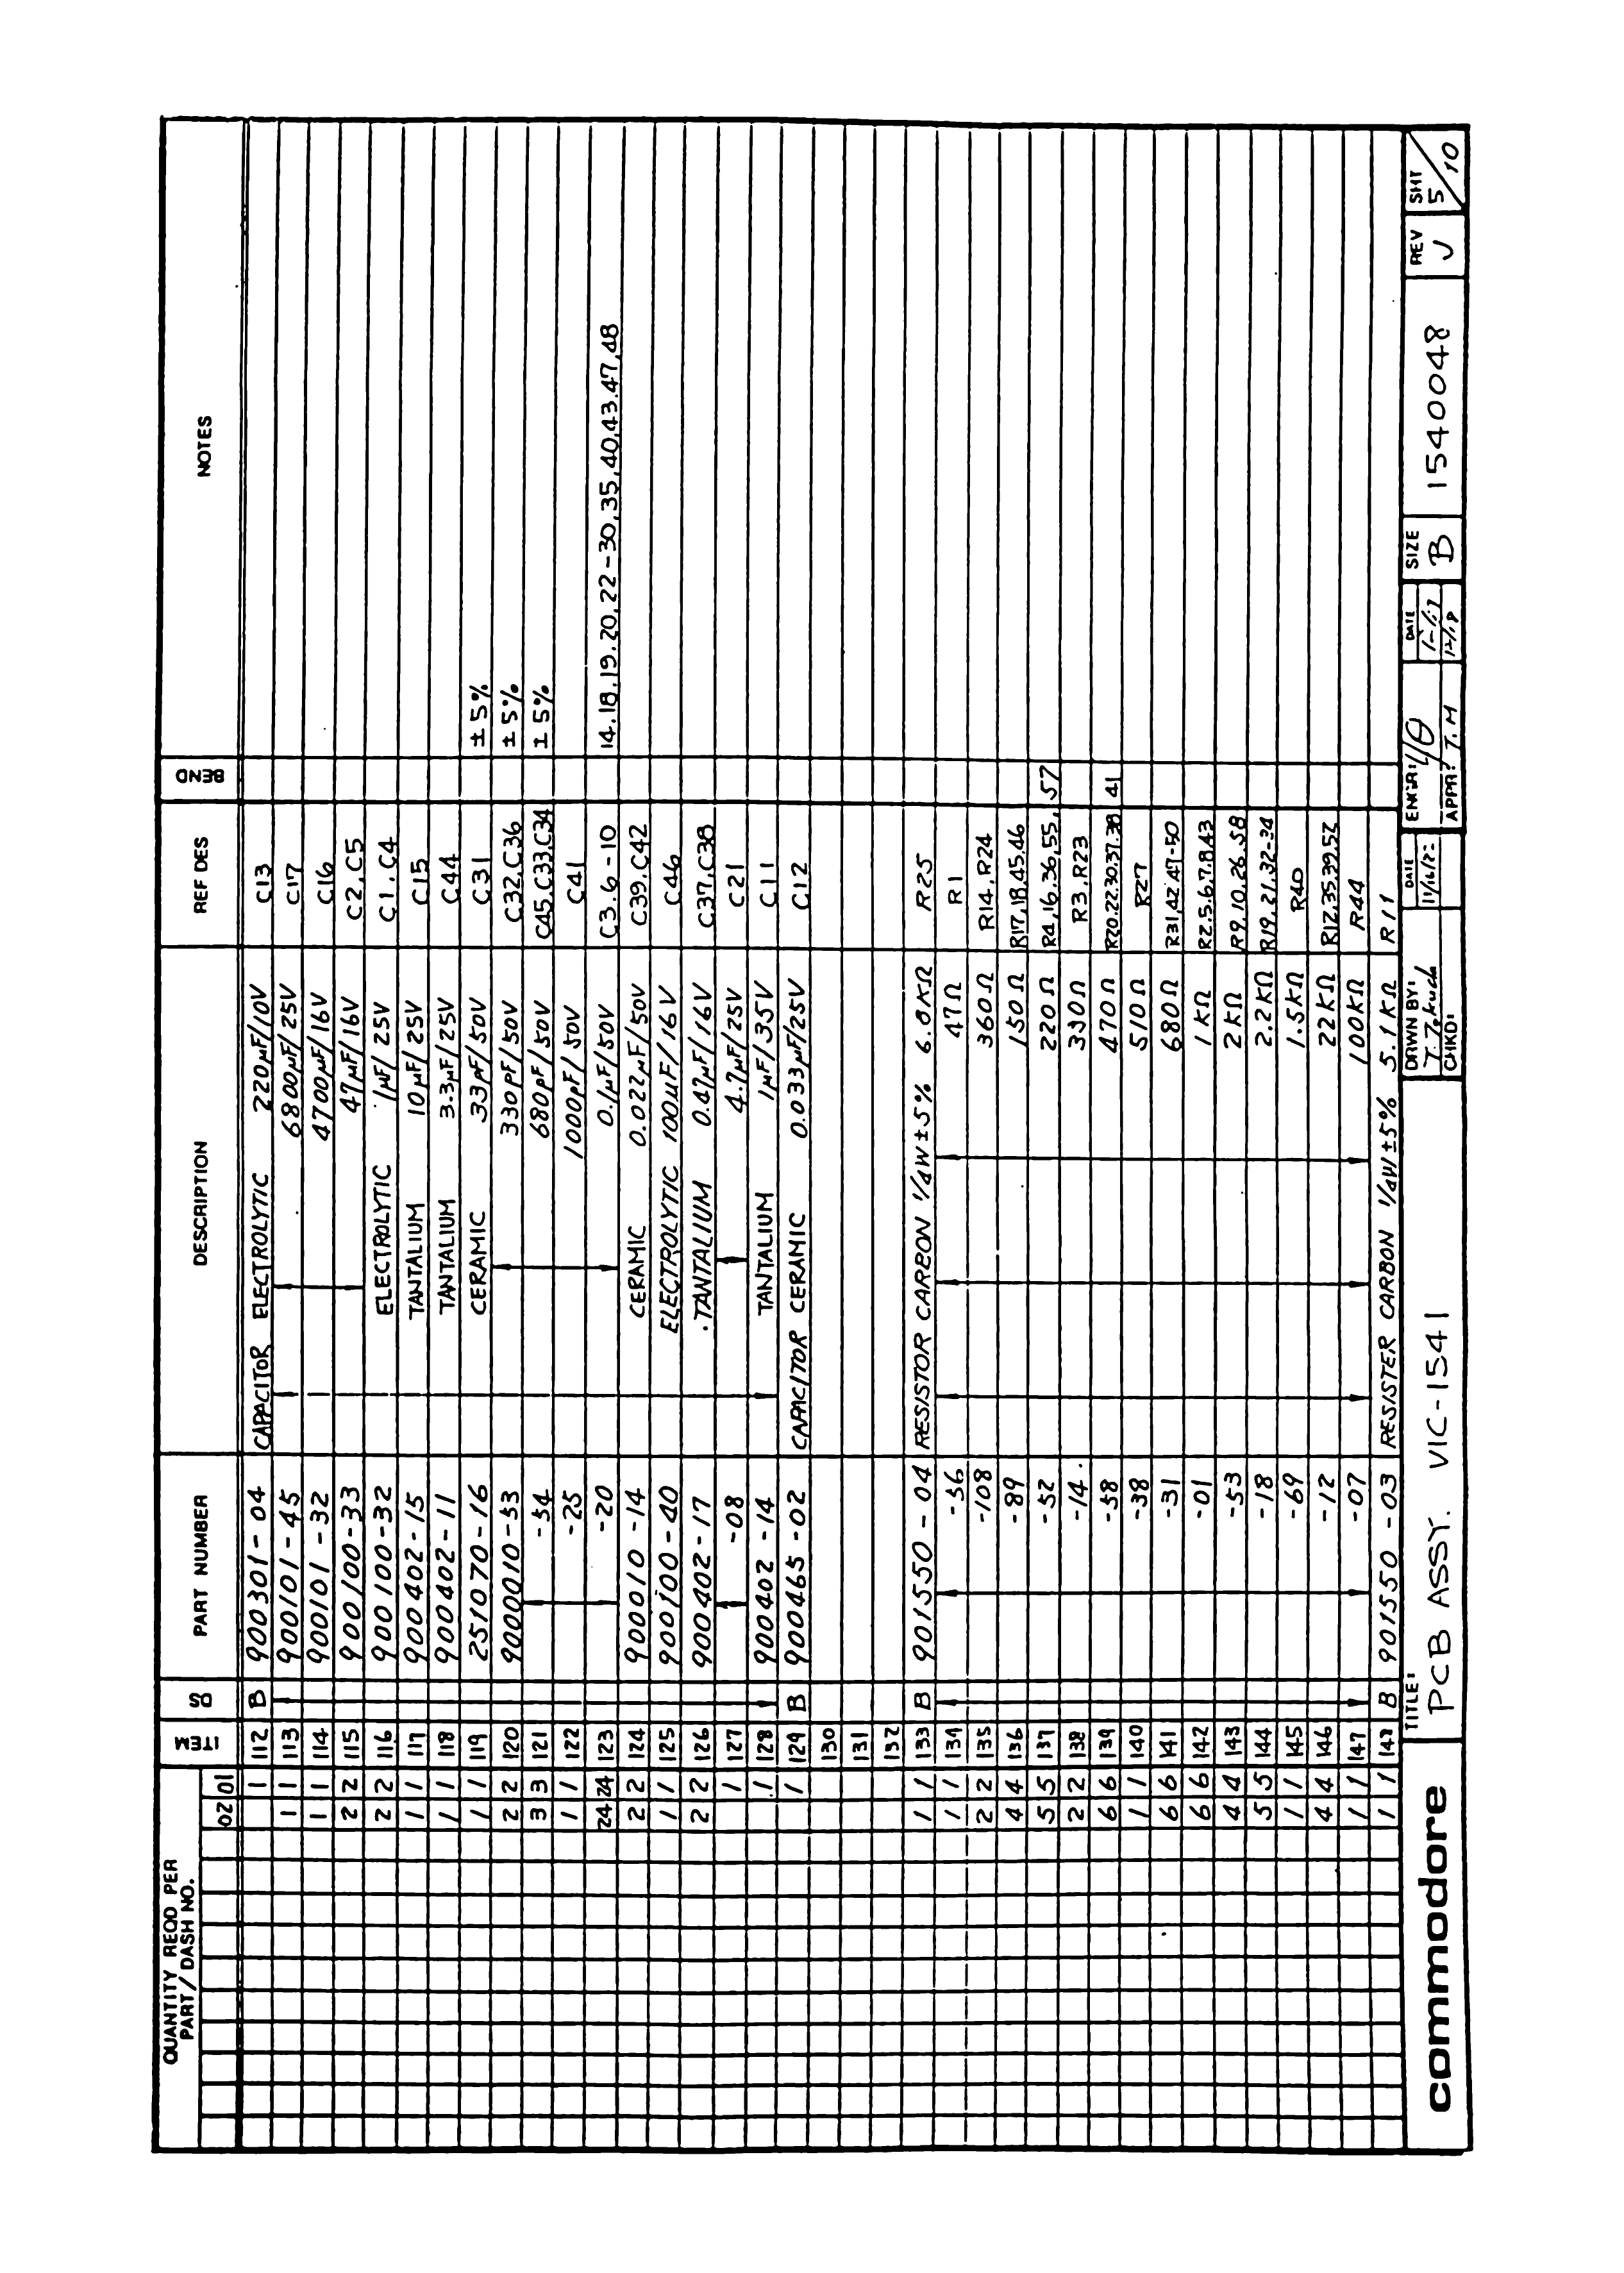 QUANTITY REQD PER PART/DASH NO. ITEM DS PART NUMBER DESCRIPTION REF DES BEND NOTES
02 01
1 112 B 900301-04 CAPACITOR ELECTROLYTIC 220µF/10V C13
1 1 113 900101-45 6800µF/25V C17
1 1 114 900101-32 4700µF/16V C16
2 2 115 900100-33 47µF/16V C2,C5
2 2 116 900100-32 ELECTROLYTIC 1µF/25V C1,C4
1 1 117 900402-15 TANTALIUM 10µF/25V C15
1 1 118 900402-11 TANTALIUM 3.3µF/25V C44
1 1 119 251070-16 CERAMIC 33pF/50V C31 ±5%
2 2 120 900010-53 330pF/50V C32,C36 ±5%
3 3 121 -54 680pF/50V C45,C33,C34 ±5%
1 1 122 -25 1000pF/50V C41
24 24 123 -20 0.1µF/50V C3.6-10 14.18.19.20,22-30,35,40,43.47,48
2 2 124 900010-14 CERAMIC 0.022µF/50V C39,C42
1 1 125 900100-40 ELECTROLYTIC 100µF/16V C46
2 2 126 900402-17 TANTALIUM 0.47µF/16V C37,C38
1 127 -08 4.7µF/25V C21
1 128 900402-14 TANTALIUM 1µF/35V C11
1 129 B 900465-02 CAPACITOR CERAMIC 0.033µF/25V C12
130
131
132
1 1 133 B 901550-04 RESISTOR CARBON 1/4W±5% 6.8KΩ R25
1 1 134 -56 47Ω R1
2 2 135 -108 360Ω R14,R24
4 4 136 -89 150Ω R17,18,45,46
5 5 137 -52 220Ω R4,16.36,55,57
2 2 138 -14 330Ω R3,R23
6 6 139 -58 470Ω R20.22.30.37.38 41
1 1 140 -38 510Ω R27
6 6 141 -31 680Ω R31,42,47-50
6 6 142 -01 1KΩ R2.5.6.7.8.43
4 4 143 -53 2KΩ R9,10,26.58
5 5 144 -18 2.2KΩ R19,21,32-34
1 1 145 -69 1.5KΩ R40
4 4 146 -12 22KΩ R12,35,39,52
1 1 147 -07 100KΩ R44
1 1 148 B 901550-03 RESISTER CARBON 1/4W±5% 5.1KΩ R11
commodore
TITLE: PCB ASSY. VIC-1541
DRAWN BY:
DATE 11/16/82
CHKD:
ENGR:
APPR: T.M
DATE
SIZE B 1540048
REV J
SHT 5/10